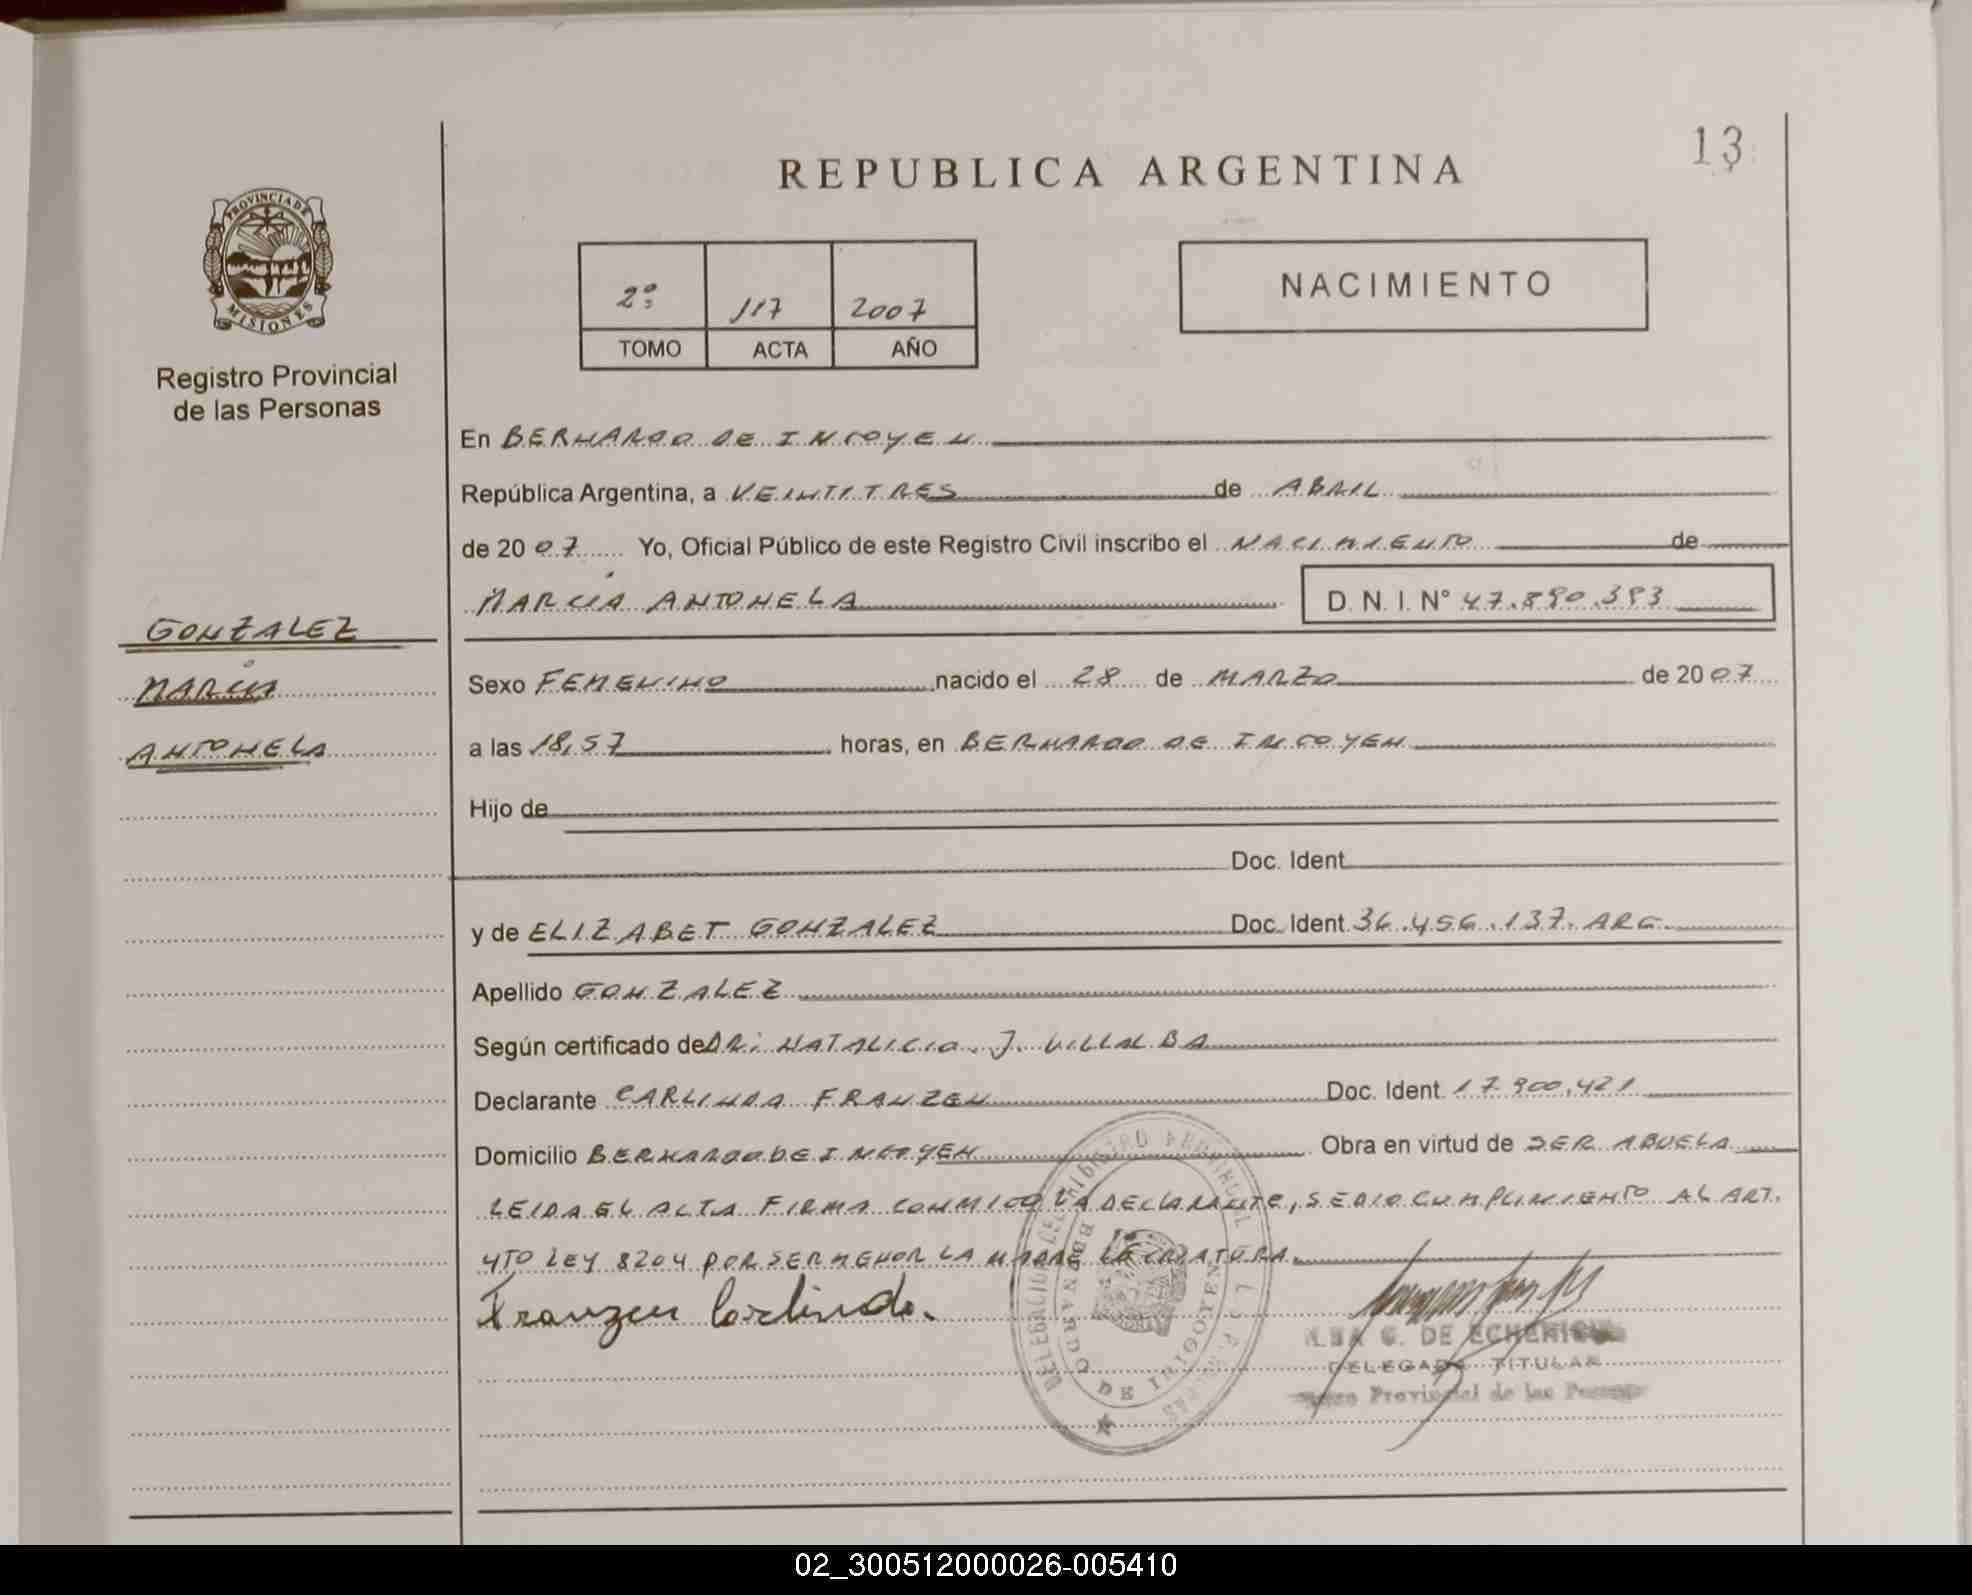 REPUBLICA ARGENTINA
13
PROVINCIA DE
MISIONES
Registro Provincial
de las Personas
2º 117 2007
TOMO ACTA AÑO
NACIMIENTO
En BERNARDO DE IRIGOYEN
República Argentina, a VEINTITRES de ABRIL
de 2007 Yo, Oficial Público de este Registro Civil inscribo el NACIMIENTO de
MARCIA ANTONELA D. N. I. Nº 47.890.393
GONZALEZ
MARCIA
ANTONELA
Sexo FEMENINO nacido el 28 de MARZO de 2007
a las 18,57 horas, en BERNARDO DE IRIGOYEN
Hijo de
Doc. Ident.
y de ELIZABET GONZALEZ Doc. Ident. 36.456.137. ARG.
Apellido GONZALEZ
Según certificado de DR: NATALICIO. J. VILLALBA
Declarante CARLINDA FRANZEN Doc. Ident. 17.900.421
Domicilio BERNARDO DE IRIGOYEN Obra en virtud de SER ABUELA
LEIDA EL ALTA FIRMA CONMIGO LA DECLARANTE, SE DIO CUMPLIMIENTO AL ART.
4TO LEY 8204 POR SER MENOR LA MADRE LA CRIATURA.
Franzen Carlinda.
BERNARDO DE IRIGOYEN
G. DE ECHENIQUE
DELEGADA TITULAR
Provincial de las Personas
02_300512000026-005410